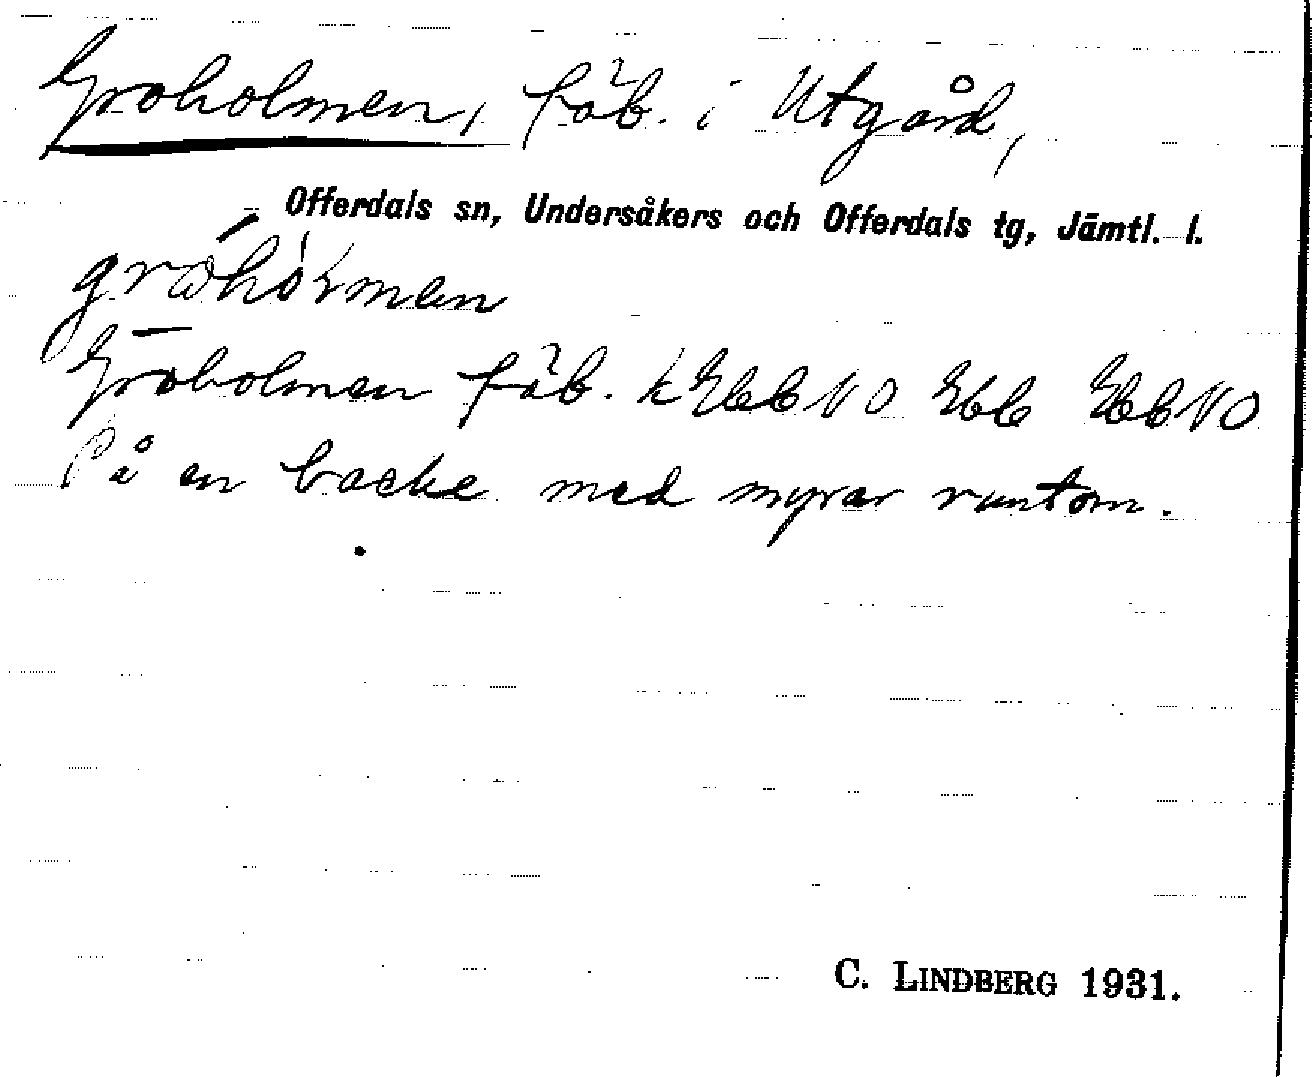 Groholmen, fäb. i Utgård,
Offerdals sn, Undersåkers och Offerdals tg, Jämtl. l.
Groholmen fäb. k
På en backe med myrar runtom.
C. LINDBERG 1931.